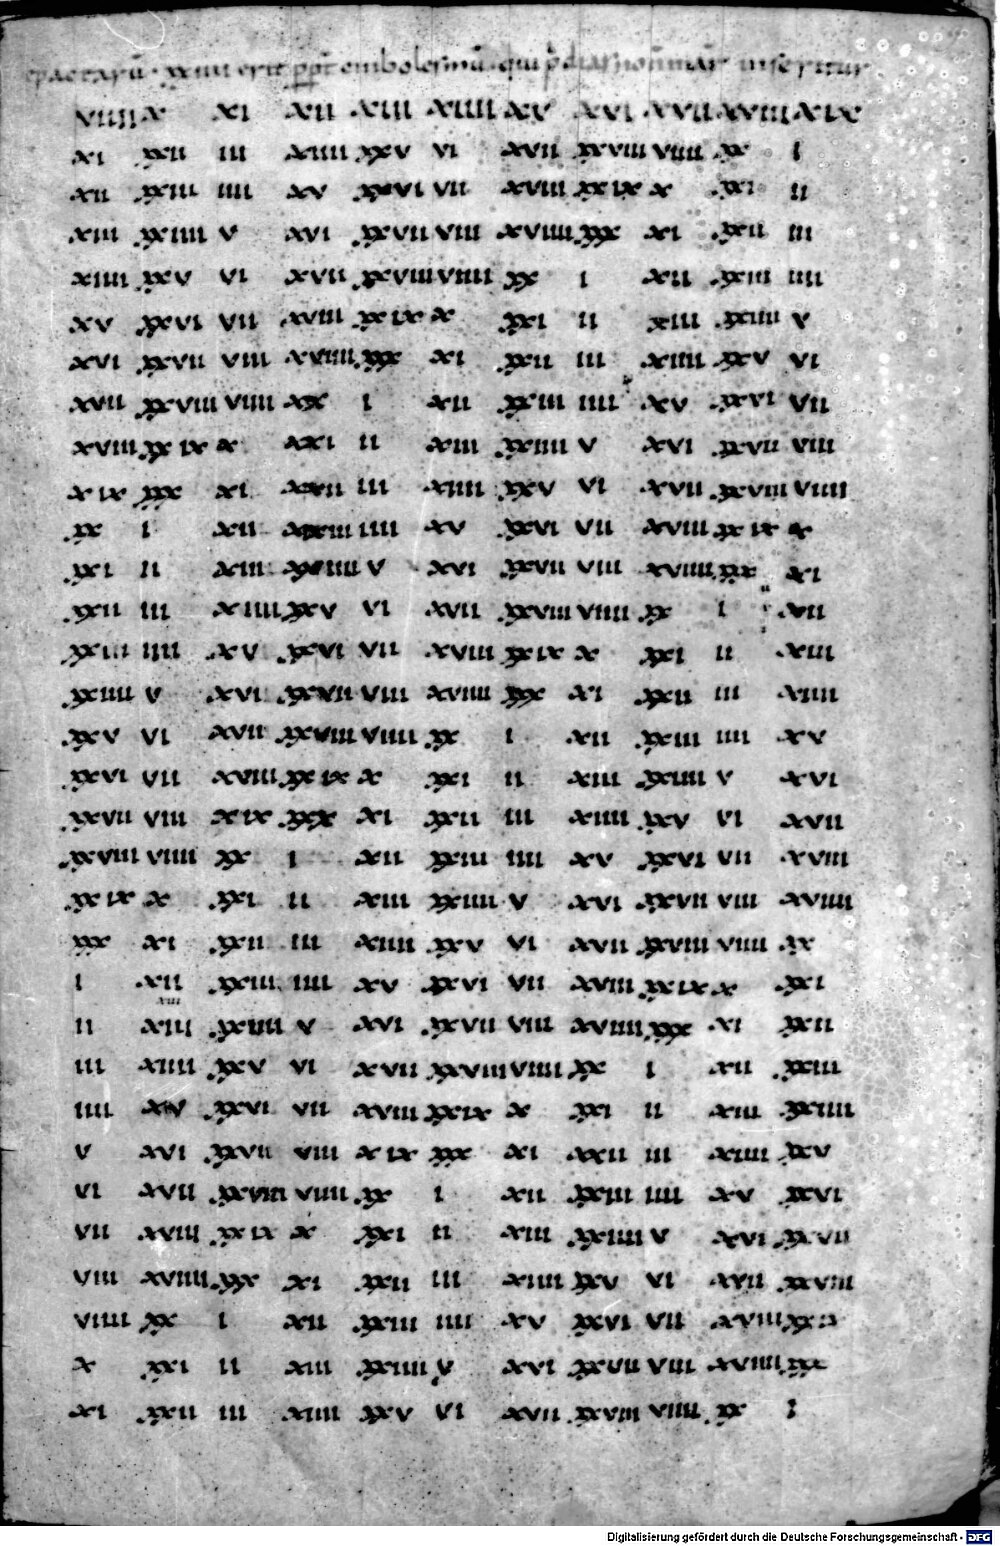 epactarū · xxiiii erit ppt embolesmū qui non mar inseritur
viiii x xi xii xiii xiiii xv xvi xvii xviii xix
xi xxii iii xiiii xxv vi xvii xxviii viiii xx i
xii xxiii iiii xv xxvi vii xviii xxix x xxi ii
xiii xxiiii v xvi xxvii viii xviiii xxx xi xxii iii
xiiii xxv vi xvii xxviii viiii xx i xii xxiii iiii
xv xxvi vii xviii xxix x xxi ii xiii xxiiii v
xvi xxvii viii xviiii xxx xi xxii iii xiiii xxv vi
xvii xxviii viiii xx i xii xxiii iiii xv xxvi vii
xviii xxix x xxi ii xiii xxiiii v xvi xxvii viii
xix xxx xi xxii iii xiiii xxv vi xvii xxviii viiii
xx i xii xxiii iiii xv xxvi vii xviii xxix x
xxi ii xiii xxiiii v xvi xxvii viii xviiii xxx xi
xxii iii xiiii xxv vi xvii xxviii viiii xx i xii
xxiii iiii xv xxvi vii xviii xxix x xxi ii xiii
xxiiii v xvi xxvii viii xviiii xxx xi xxii iii xiiii
xxv vi xvii xxviii viiii xx i xii xxiii iiii xv
xxvi vii xviii xxix x xxi ii xiii xxiiii v xvi
xxvii viii xix xxx xi xxii iii xiiii xxv vi xvii
xxviii viiii xx i xii xxiii iiii xv xxvi vii xviii
xxix x xxi ii xiii xxiiii v xvi xxvii viii xviiii
xxx xi xxii iii xiiii xxv vi xvii xxviii viiii xx
i xii xxiii iiii xv xxvi vii xviii xxix x xxi
xiii
ii xiii xxiiii v xvi xxvii viii xviiii xxx xi xxii
iii xiiii xxv vi xvii xxviii viiii xx i xii xxiii
iiii xv xxvi vii xviii xxix x xxi ii xiii xxiiii
v xvi xxvii viii xix xxx xi xxii iii xiiii xxv
vi xvii xxviii viiii xx i xii xxiii iiii xv xxvi
vii xviii xxix x xxi ii xiii xxiiii v xvi xxvii
viii xviiii xxx xi xxii iii xiiii xxv vi xvii xxviii
viiii xx i xii xxiii iiii xv xxvi vii xviii xxix
x xxi ii xiii xxiiii v xvi xxvii viii xviiii xxx
xi xxii iii xiiii xxv vi xvii xxviii viiii xx i
Digitalisierung gefördert durch die Deutsche Forschungsgemeinschaft - DFG